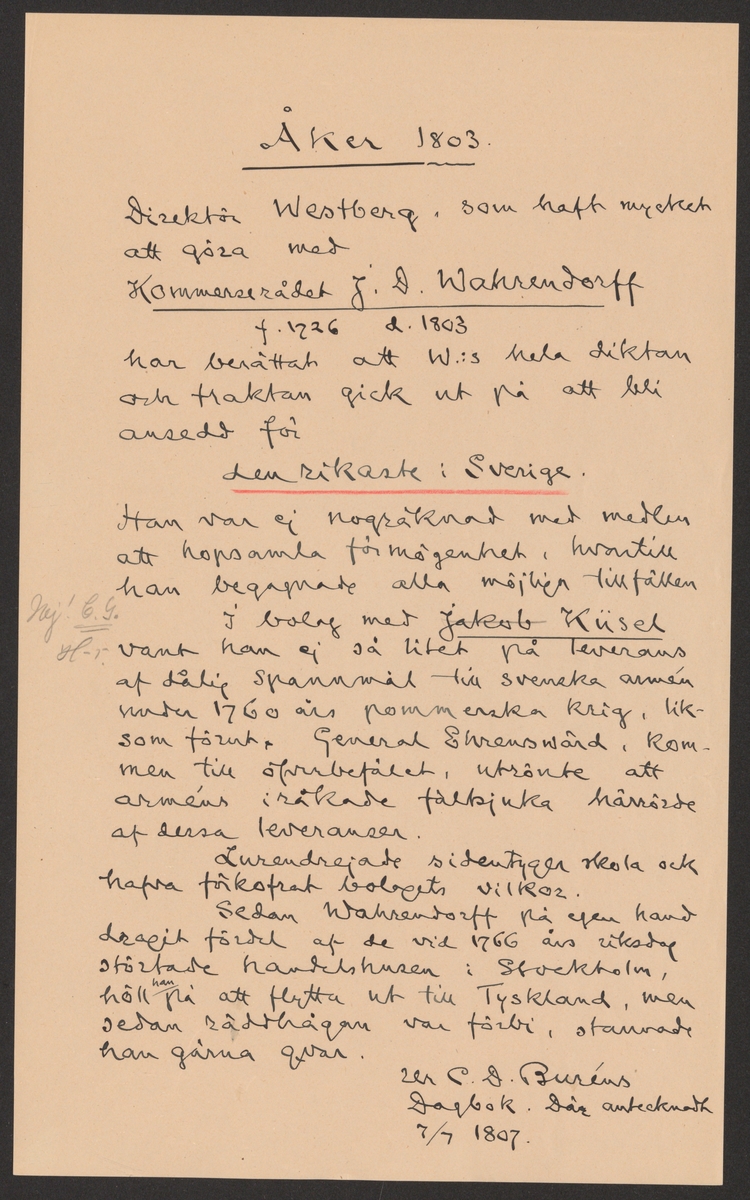 Åker 1803.
Direktör Westberg, som haft mycket
att göra med
Kommerserådet J. D. Wahrendorff
f. 1726 d. 1803
har berättat att W.:s hela diktan
och traktan gick ut på att bli
ansedd för
den rikaste i Sverige.
Han var ej nogräknad med medlen
att hopsamla förmögenhet, hvartill
han begagnade alla möjliga tillfällen
I bolag med Jakob Küsel
Nej! C. G.
vant han ej så litet på leverans
af dålig spannmål till svenska armén
under 1760 års pommerska krig, lik-
som förut. General Ehrenswärd, kom-
men till öfverbefälet, utrönte att
arméns iråkade fältsjuka härrörde
af dessa leveranser.
Lurendrejade sidentyger skola ock
hafva förkofrat bolagets vilkor.
Sedan Wahrendorff på egen hand
dragit fördel af de vid 1766 års riksdag
störtade handelshusen i Stockholm,
höll han på att flytta ut till Tyskland, men
sedan räddhågan var förbi, stannade
han gärna qvar.
ur C. D. Buréns
Dagbok. Där antecknadt
7/7 1807.